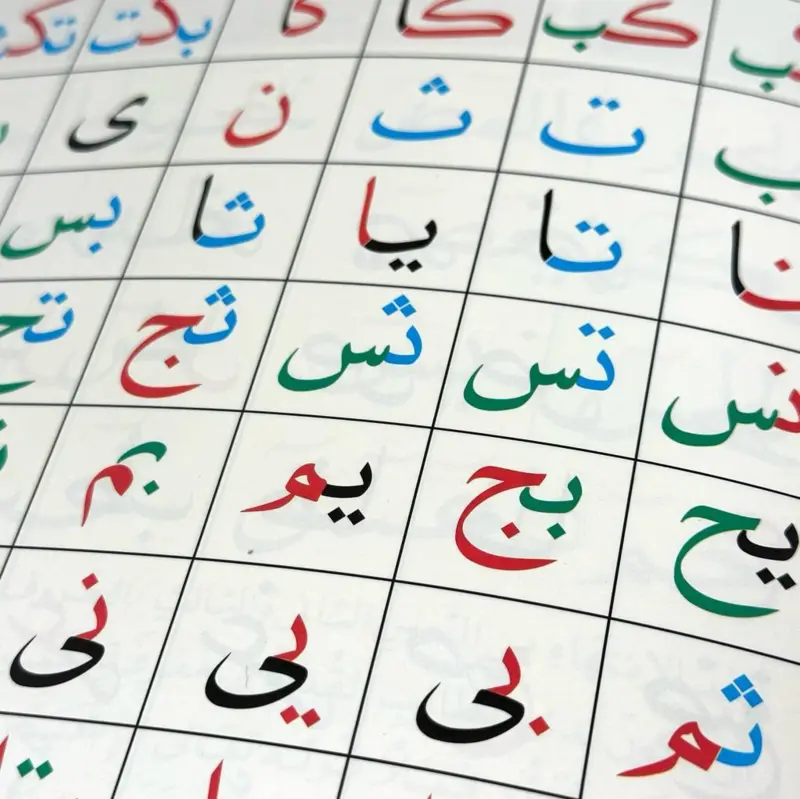 كب كا كا بكت
ب ت ث ن ى
نا تا يا ثا بس
نس تس ثس ثج تح
يح بج يم بم
ثم بى يى نى